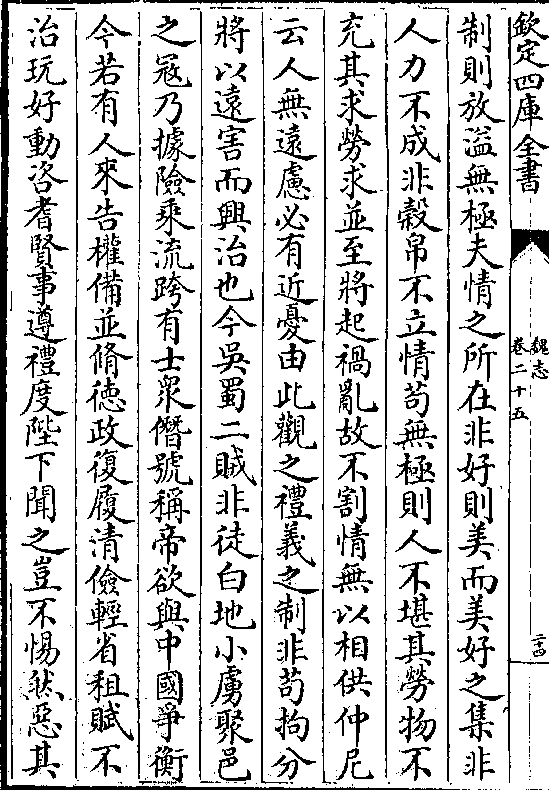 欽定四庫全書
魏志
卷二十五
二十四
制則放溢無極夫情之所在非好則美而美好之集非
人力不成非穀帛不立情茍無極則人不堪其勞物不
充其求勞求並至將起禍亂故不割情無以相供仲尼
云人無遠慮必有近憂由此觀之禮義之制非茍拘分
將以遠害而興治也今吳蜀二賊非徒白地小虜聚邑
之冦乃據險乗流跨有士衆僭號稱帝欲與中國爭衡
今若有人來告權備並脩徳政復履清儉輕省租賦不
治玩好動咨耆賢事遵禮度陛下聞之豈不惕然惡其